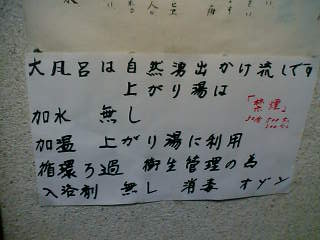 大風呂は自然湧出かけ流しです
上がり湯は
「禁煙」
加水 無し
加温 上がり湯に利用
循環ろ過 衛生管理の為
入浴剤 無し 消毒 オゾン